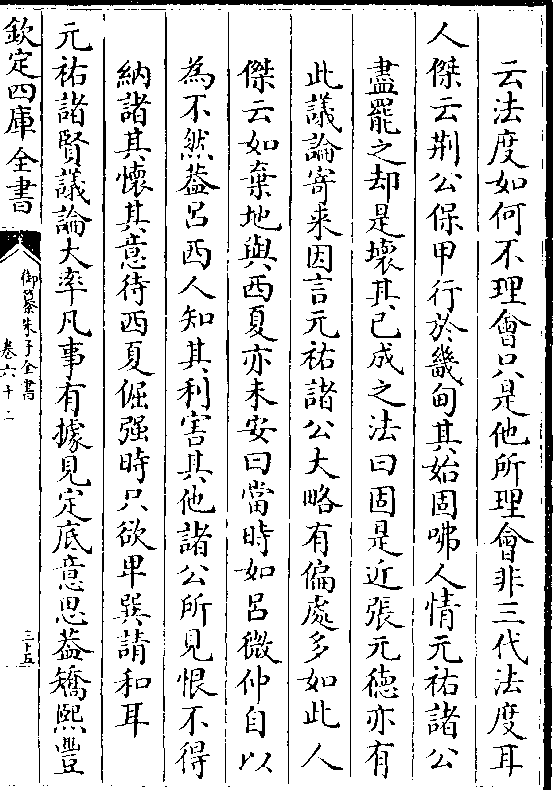 云法度如何不理會只是他所理會非三代法度耳
人傑云荆公保甲行於畿甸其始固咈人情元祐諸公
盡罷之却是壞其已成之法曰固是近張元德亦有
此議論寄来因言元祐諸公大略有偏處多如此人
傑云如棄地與西夏亦未安曰當時如吕微仲自以
為不然葢吕西人知其利害其他諸公所見恨不得
納諸其懷其意待西夏倔强時只欲卑巽請和耳
元祐諸賢議論大率凡事有據見定底意思葢矯熙豐
欽定四庫全書
御纂朱子全書
卷六十二
三十五